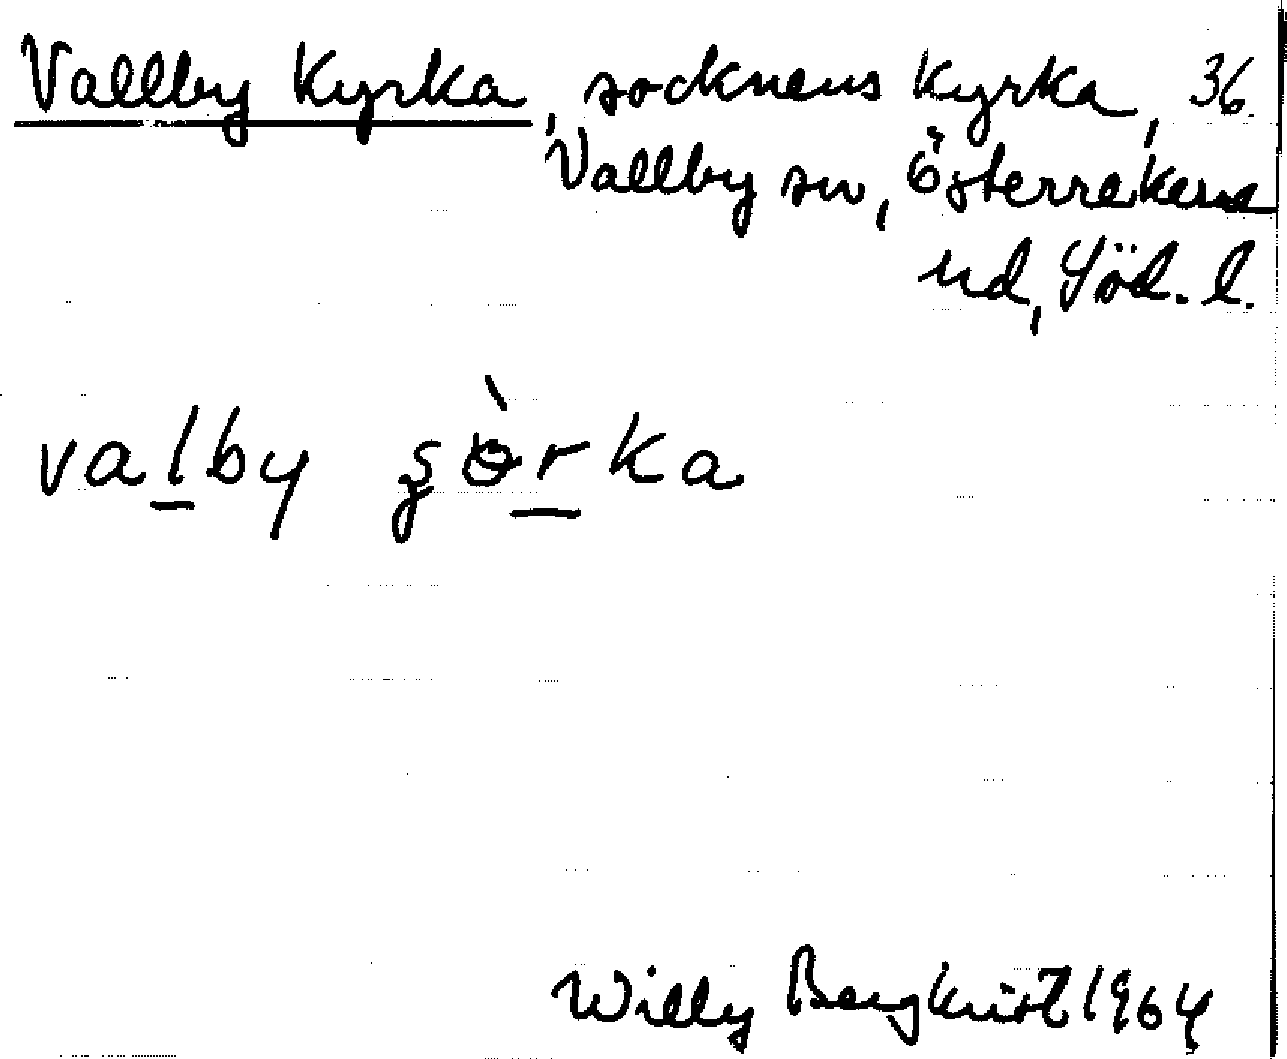 Vallby Kyrka, socknens Kyrka, 36.
Vallby sn, Österrekarne
hd, Söd. l.
valby şɵ̀rka
Willy Bergkvist 1964